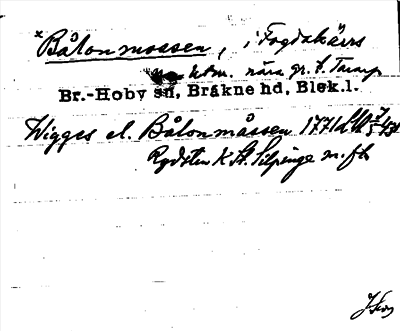 *Bålonmossen, i Fogdakärrs
hdm. nära gr. t. Tararp
Br.-Hoby sn, Bräkne hd, Blek.l.
Wigges el. Bålonmåssen 1771 LM
Rydsten K St. Silpinge m. fl.